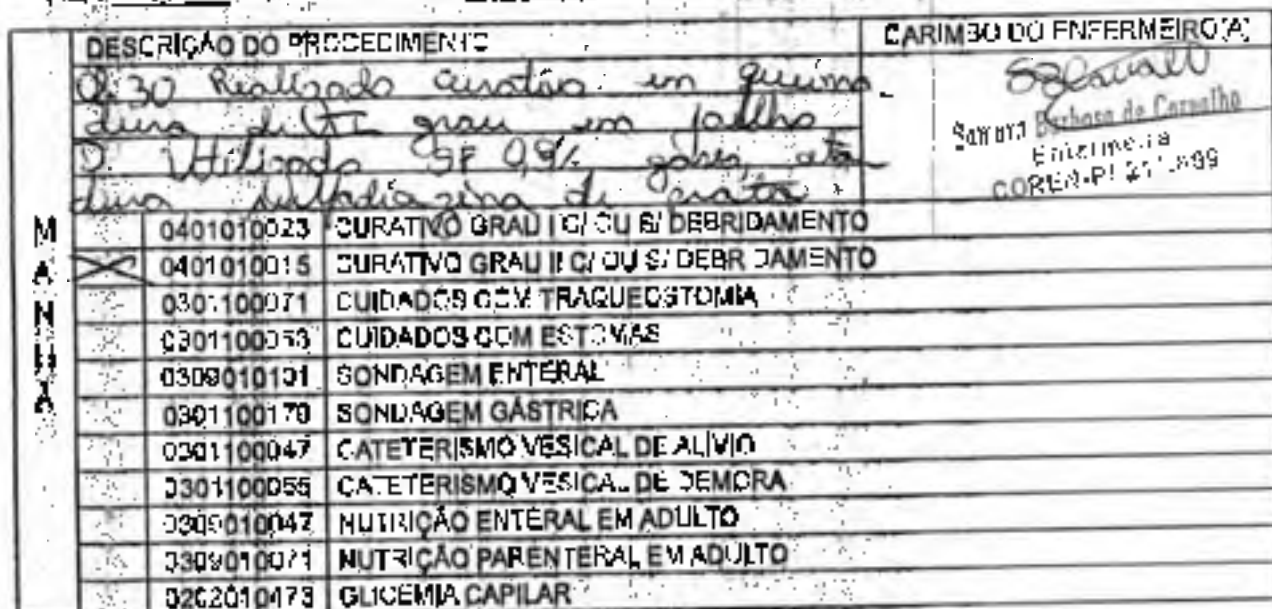 DESCRIÇÃO DO PROCEDIMENTO
CARIMBO DO ENFERMEIRO(A)
Realizado curativo em queima
dura de grau em joelho
D. Utilizado SF 0,9%, gases, ata
dura sulfadiazina de prata
Barbosa de Carvalho
Enfermeira
COREN-PI
MANHÃ
0401010023 CURATIVO GRAU I C/ OU S/ DEBRIDAMENTO
0401010015 CURATIVO GRAU II C/ OU S/ DEBRIDAMENTO
0301100071 CUIDADOS COM TRAQUEOSTOMIA
0301100063 CUIDADOS COM ESTOMAS
0309010101 SONDAGEM ENTERAL
0301100179 SONDAGEM GÁSTRICA
0301100047 CATETERISMO VESICAL DE ALÍVIO
0301100055 CATETERISMO VESICAL DE DEMORA
0309010047 NUTRIÇÃO ENTERAL EM ADULTO
0309010071 NUTRIÇÃO PARENTERAL EM ADULTO
0202010473 GLICEMIA CAPILAR